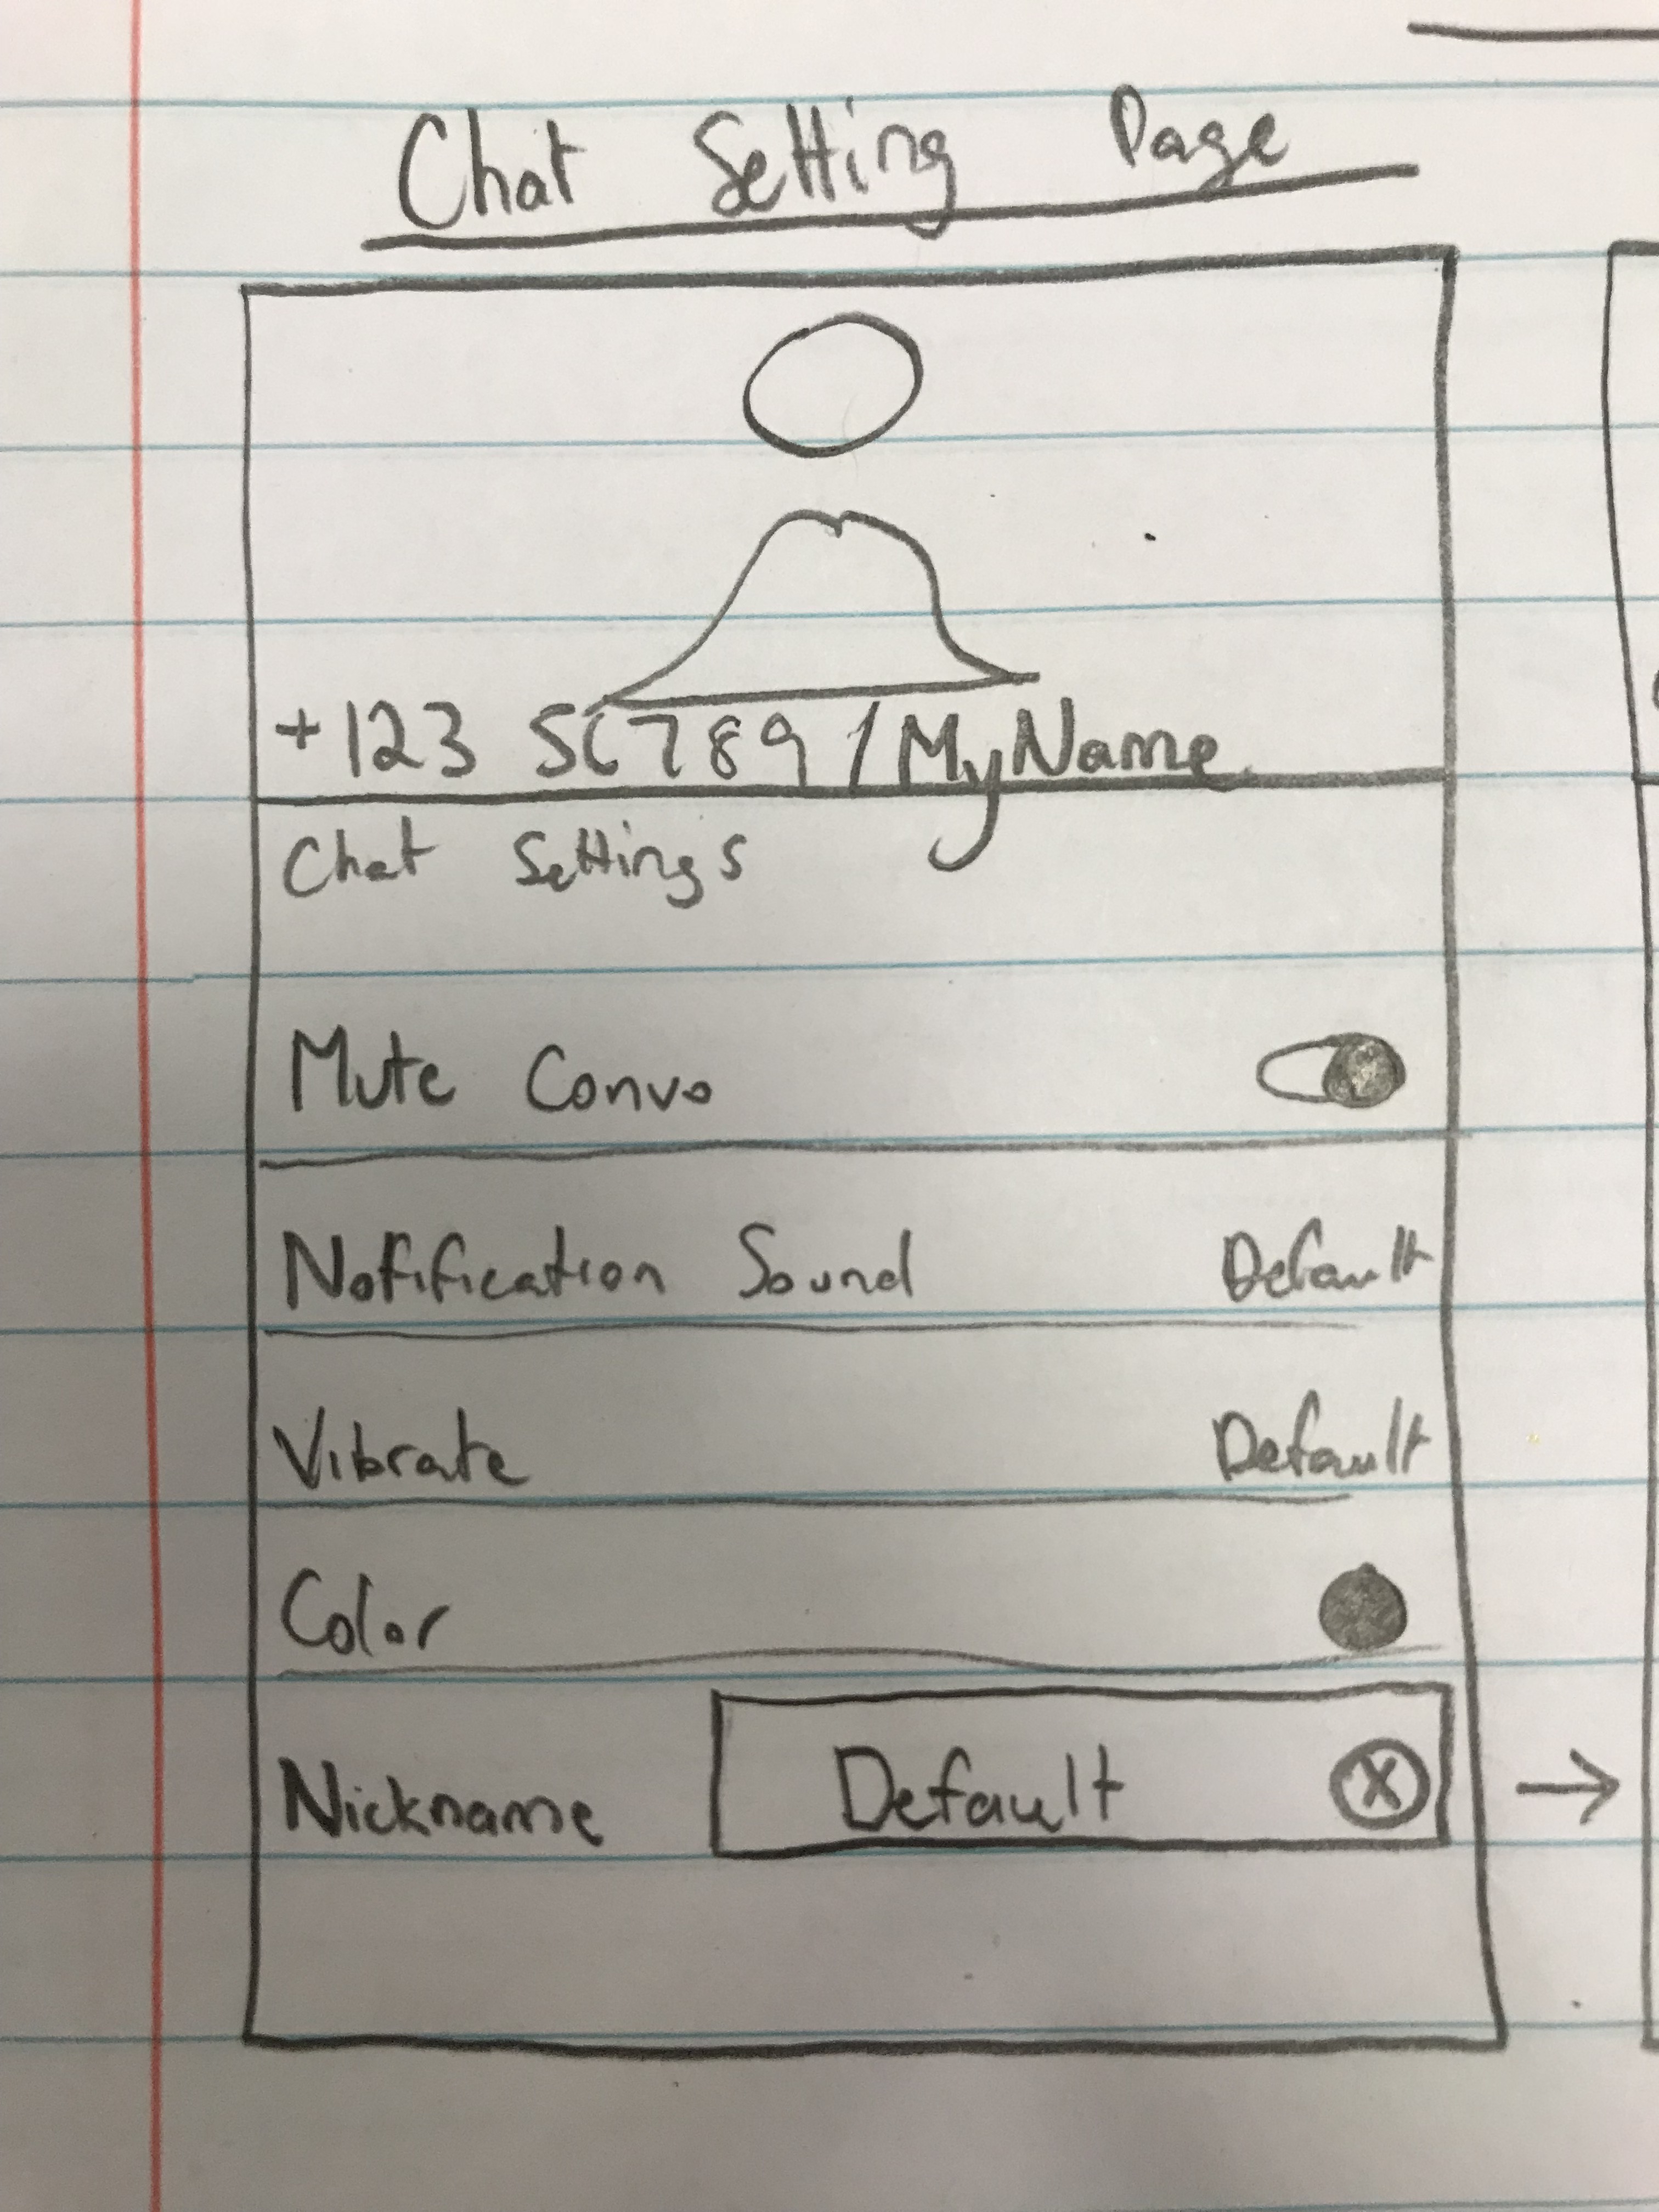 Chat Setting Page
+123 56789 / My Name
Chat Settings
Mute Convo
Notification Sound Default
Vibrate Default
Color
Nickname Default X